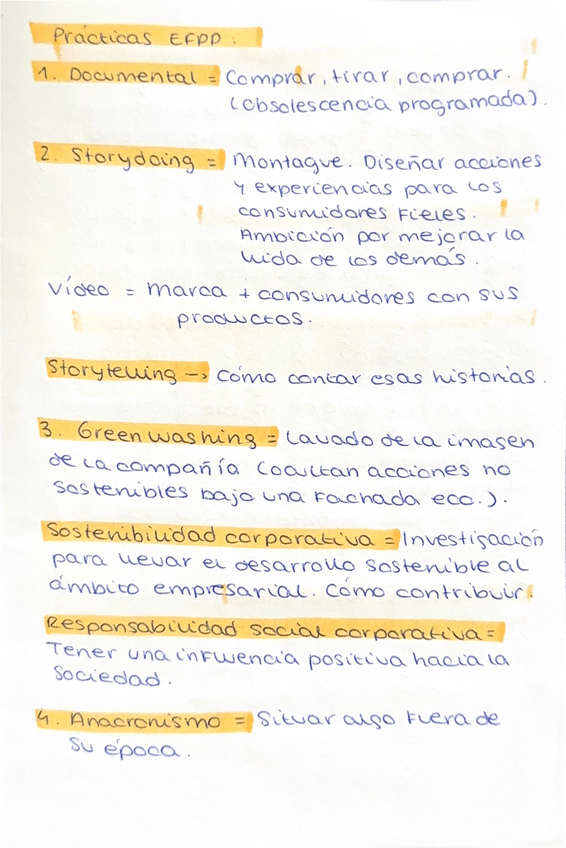 Prácticas EFPD:
1. Documental = Comprar, tirar, comprar.
(Obsolescencia programada).
2. Storydoing = Montague. Diseñar acciones
y experiencias para los
consumidores fieles.
Ambición por mejorar la
vida de los demás.
Vídeo = marca + consumidores con sus
productos.
Storytelling -> Cómo contar esas historias.
3. Greenwashing = Lavado de la imagen
de la compañía (ocultan acciones no
sostenibles bajo una fachada eco.).
Sostenibilidad corporativa = Investigación
para llevar el desarrollo sostenible al
ámbito empresarial. Cómo contribuir.
Responsabilidad social corporativa =
Tener una influencia positiva hacia la
sociedad.
4. Anacronismo = Situar algo fuera de
su época.